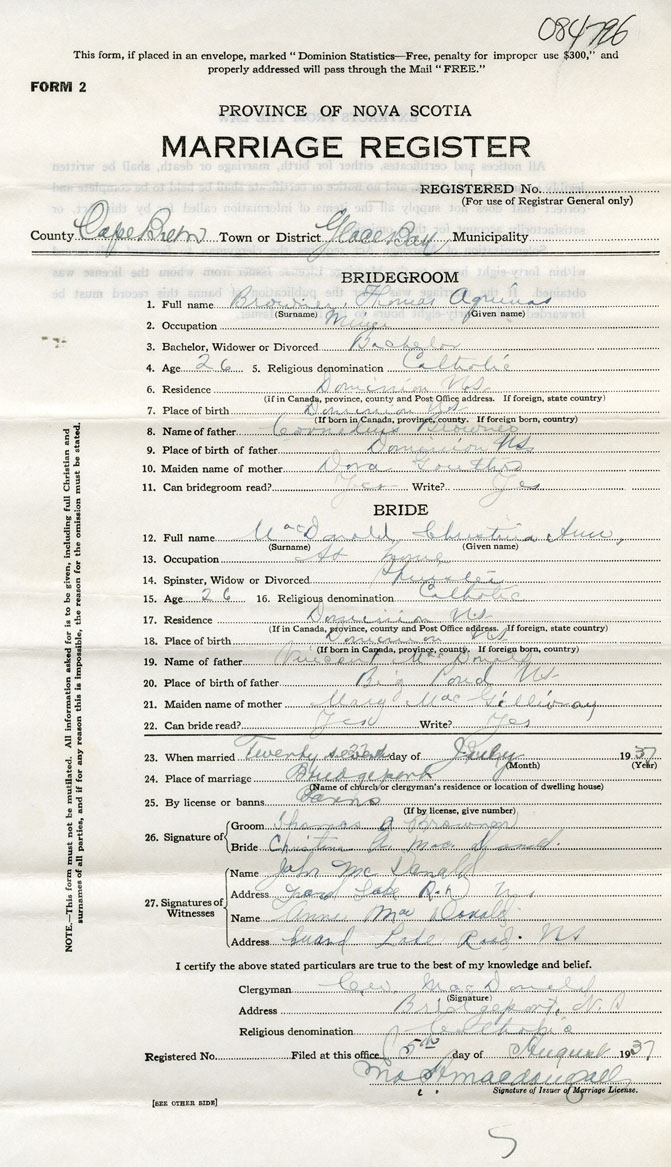 084796
This form, if placed in an envelope, marked "Dominion Statistics—Free, penalty for improper use $300," and
properly addressed will pass through the Mail "FREE."
FORM 2
PROVINCE OF NOVA SCOTIA
MARRIAGE REGISTER
REGISTERED No.
(For use of Registrar General only)
County Cape Breton Town or District Glace Bay Municipality
BRIDEGROOM
1. Full name Browner, Thomas Aquinas
(Surname) (Given name)
2. Occupation Miner
3. Bachelor, Widower or Divorced Bachelor
4. Age 26 5. Religious denomination Catholic
6. Residence Dominion NS
(if in Canada, province, county and Post Office address. If foreign, state country)
7. Place of birth Dominion NS
(If born in Canada, province, county. If foreign born, country)
8. Name of father Cornelius Browner
9. Place of birth of father Dominion NS
10. Maiden name of mother Dora
11. Can bridegroom read? Yes Write? Yes
BRIDE
12. Full name MacDonald, Christina Ann,
(Surname) (Given name)
13. Occupation At Home
14. Spinster, Widow or Divorced Spinster
15. Age 26 16. Religious denomination Catholic
17. Residence Dominion NS
(If in Canada, province, county and Post Office address. If foreign, state country)
18. Place of birth Dominion NS
(If born in Canada, province, county. If foreign born, country)
19. Name of father Vincent MacDonald
20. Place of birth of father Big Pond NS
21. Maiden name of mother Mary MacGillivray
22. Can bride read? Yes Write? Yes
23. When married Twenty seventh day of July 1937
(Month) (Year)
24. Place of marriage Bridgeport
(Name of church or clergyman's residence or location of dwelling house)
25. By license or banns Banns
(If by license, give number)
26. Signature of Groom Thomas A Browner
Bride Christina A. MacDonald.
27. Signatures of Witnesses
Name John McDonald
Address Grand Lake Rd. NS
Name Anna MacDonald
Address Grand Lake Road. NS
I certify the above stated particulars are true to the best of my knowledge and belief.
Clergyman MacDonald
(Signature)
Address Bridgeport, N.S
Religious denomination Catholic
Registered No. Filed at this office 5th day of August 1937
Macdougall
Signature of Issuer of Marriage License.
[SEE OTHER SIDE]
5
NOTE.—This form must not be mutilated. All information asked for is to be given, including full Christian and
surnames of all parties, and if for any reason this is impossible, the reason for the omission must be stated.